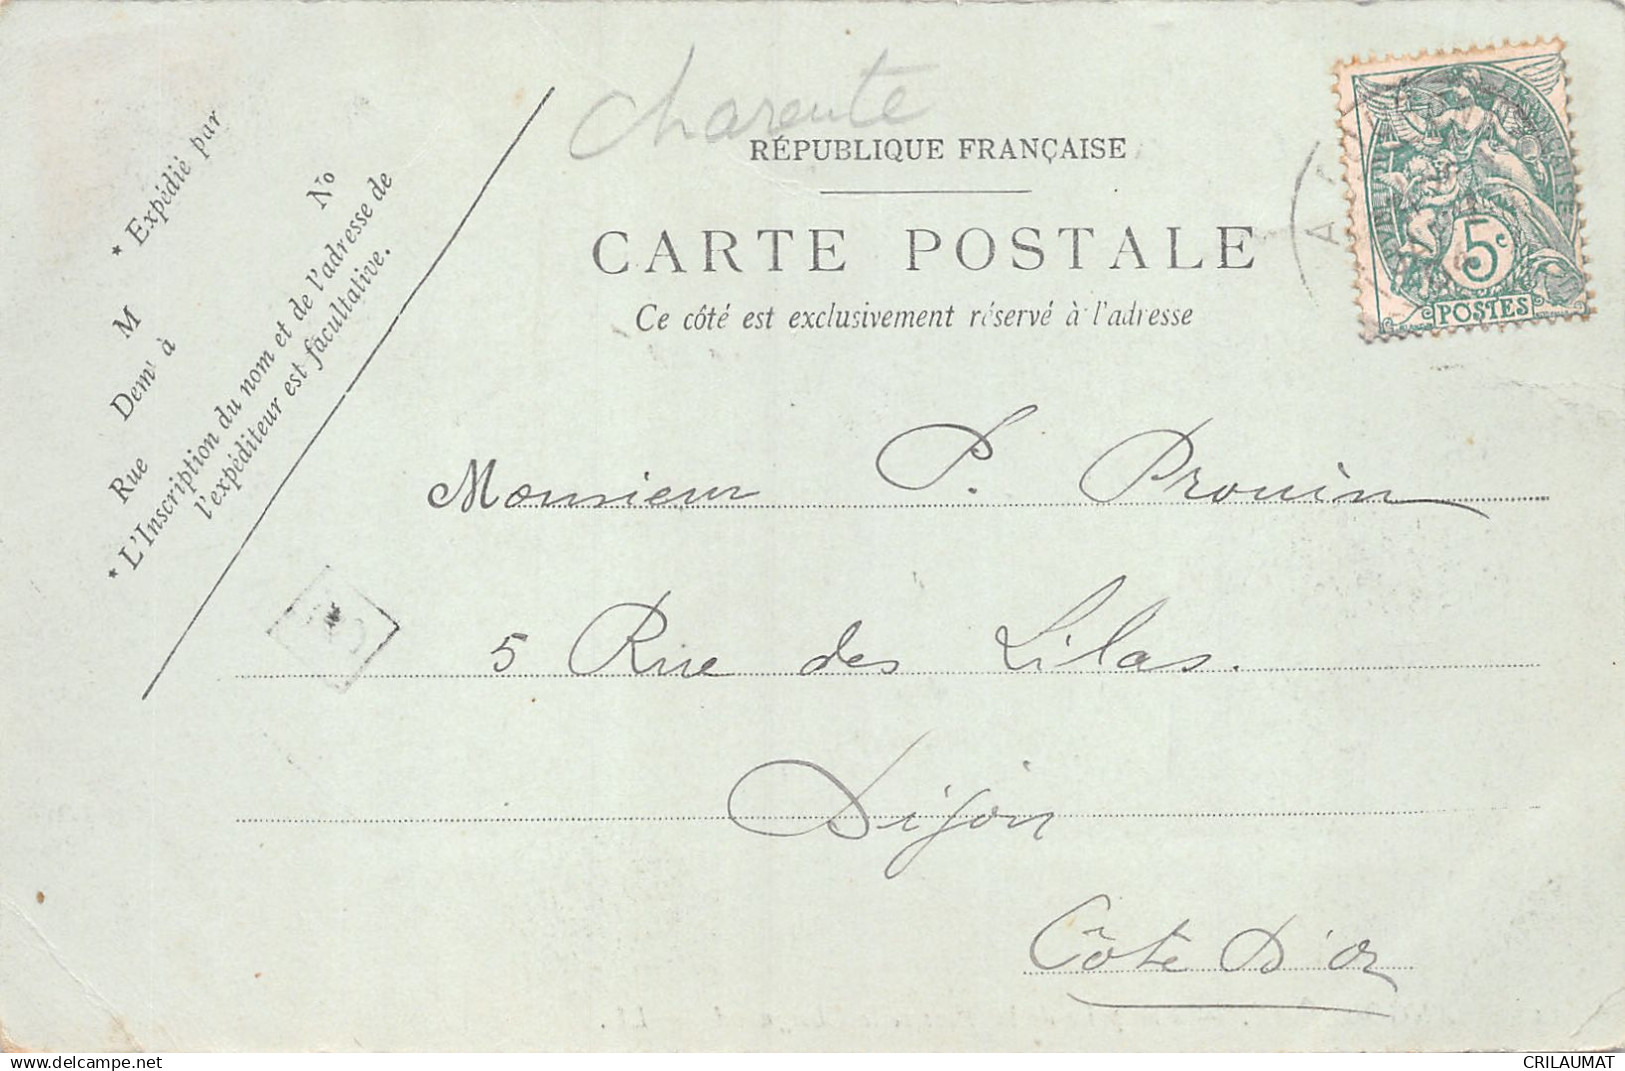 Charente
RÉPUBLIQUE FRANÇAISE
CARTE POSTALE
Ce côté est exclusivement réservé à l'adresse
* Expédié par
M
Demt à
Rue No
* L'Inscription du nom et de l'adresse de
l'expéditeur est facultative.
5c
POSTES
Monsieur P. Prouin
5 Rue des Lilas.
Dijon
Côte d'or
CRILAUMAT